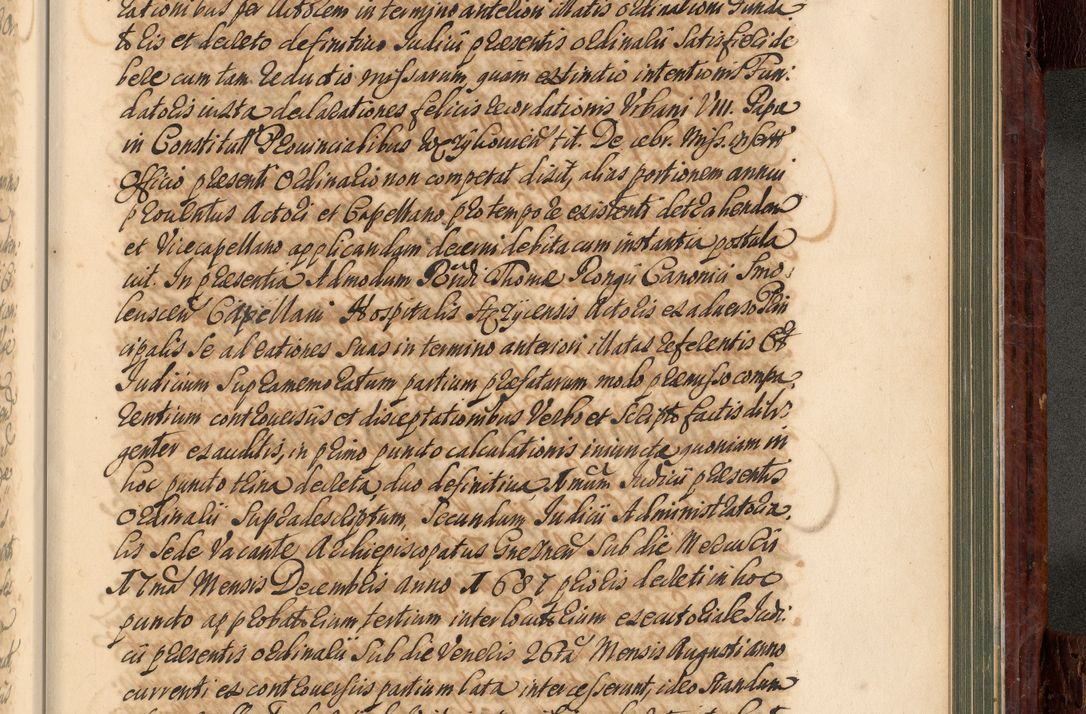 rationibus per Actorem in termino anteriori illatis ordinationi Funda
toris et decreto definitivo Judicii præsentis ordinarii satisfieri de
bere cum tam reductio missarum, quam extinctio intentionis Fun:
datoris iuxta declarationes felicis recordationis Urbani VIII. Papæ
in Constitutt Provincialibus Wężykovien tit. De cebr. Miss.
Officio præsenti Ordinario non competat dixit, alias portionem annui
proventus Actori et Capellano pro tempore existenti detrahendam
et Vicecapellano applicandam decerni debita cum instantia postula
vit. In præsentia Admodum Rndi Thomæ Rongii Canonici Smo:
lenscen Capellani Hospitalis Actoris ex adverso Prin
cipalis se ad rationes suas in termino anteriori illatas referentis Et
Judicium supramemoratum partium præfatarum modo præmisso compa.
rentium controversiis et disceptationibus Verbo et Scripto factis dili:
genter exauditis, in primo puncto calculationis iniunctæ quoniam in
hoc puncto trina decreta, duo definitiva, 1mum Judicii præsentis
Ordinarii supradescriptum, Secundum Judicii Administratoria.
lis Sede Vacante Archiepiscopatus Gneznen Sub die Mercurii
17ma Mensis Decembris anno 1687 prioris decreti in hoc
puncto approbatorium tertium interlocutorium executoriale Judi:
cii præsentis ordinarii sub die Veneris 26ta Mensis Augusti anno
currenti ex controversiis partium lata intercesserunt, ideo standum